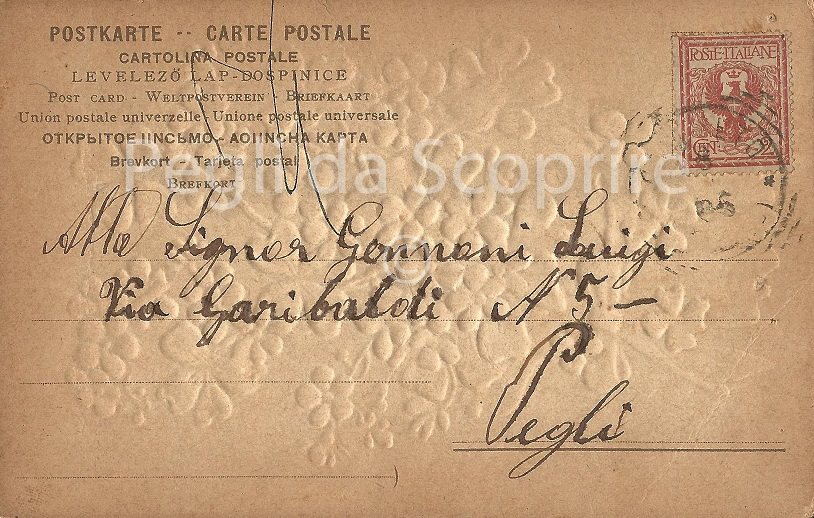 POSTKARTE -- CARTE POSTALE
CARTOLINA POSTALE
LEVELEZŐ LAP-DOSPINICE
POST CARD - WELTPOSTVEREIN - BRIEFKAART
Union postale univerzelle - Unione postale universale
ОТКРЫТОЕ ПNСЬМО - АОПNСНА КАРТА
Brevkort - Tarjeta postal
BREFKORT
POSTE·ITALIANE
CEN
06
Pegli da Scoprire
©
Signor Gonnani Luigi
Via Garibaldi N 5 —
Pegli